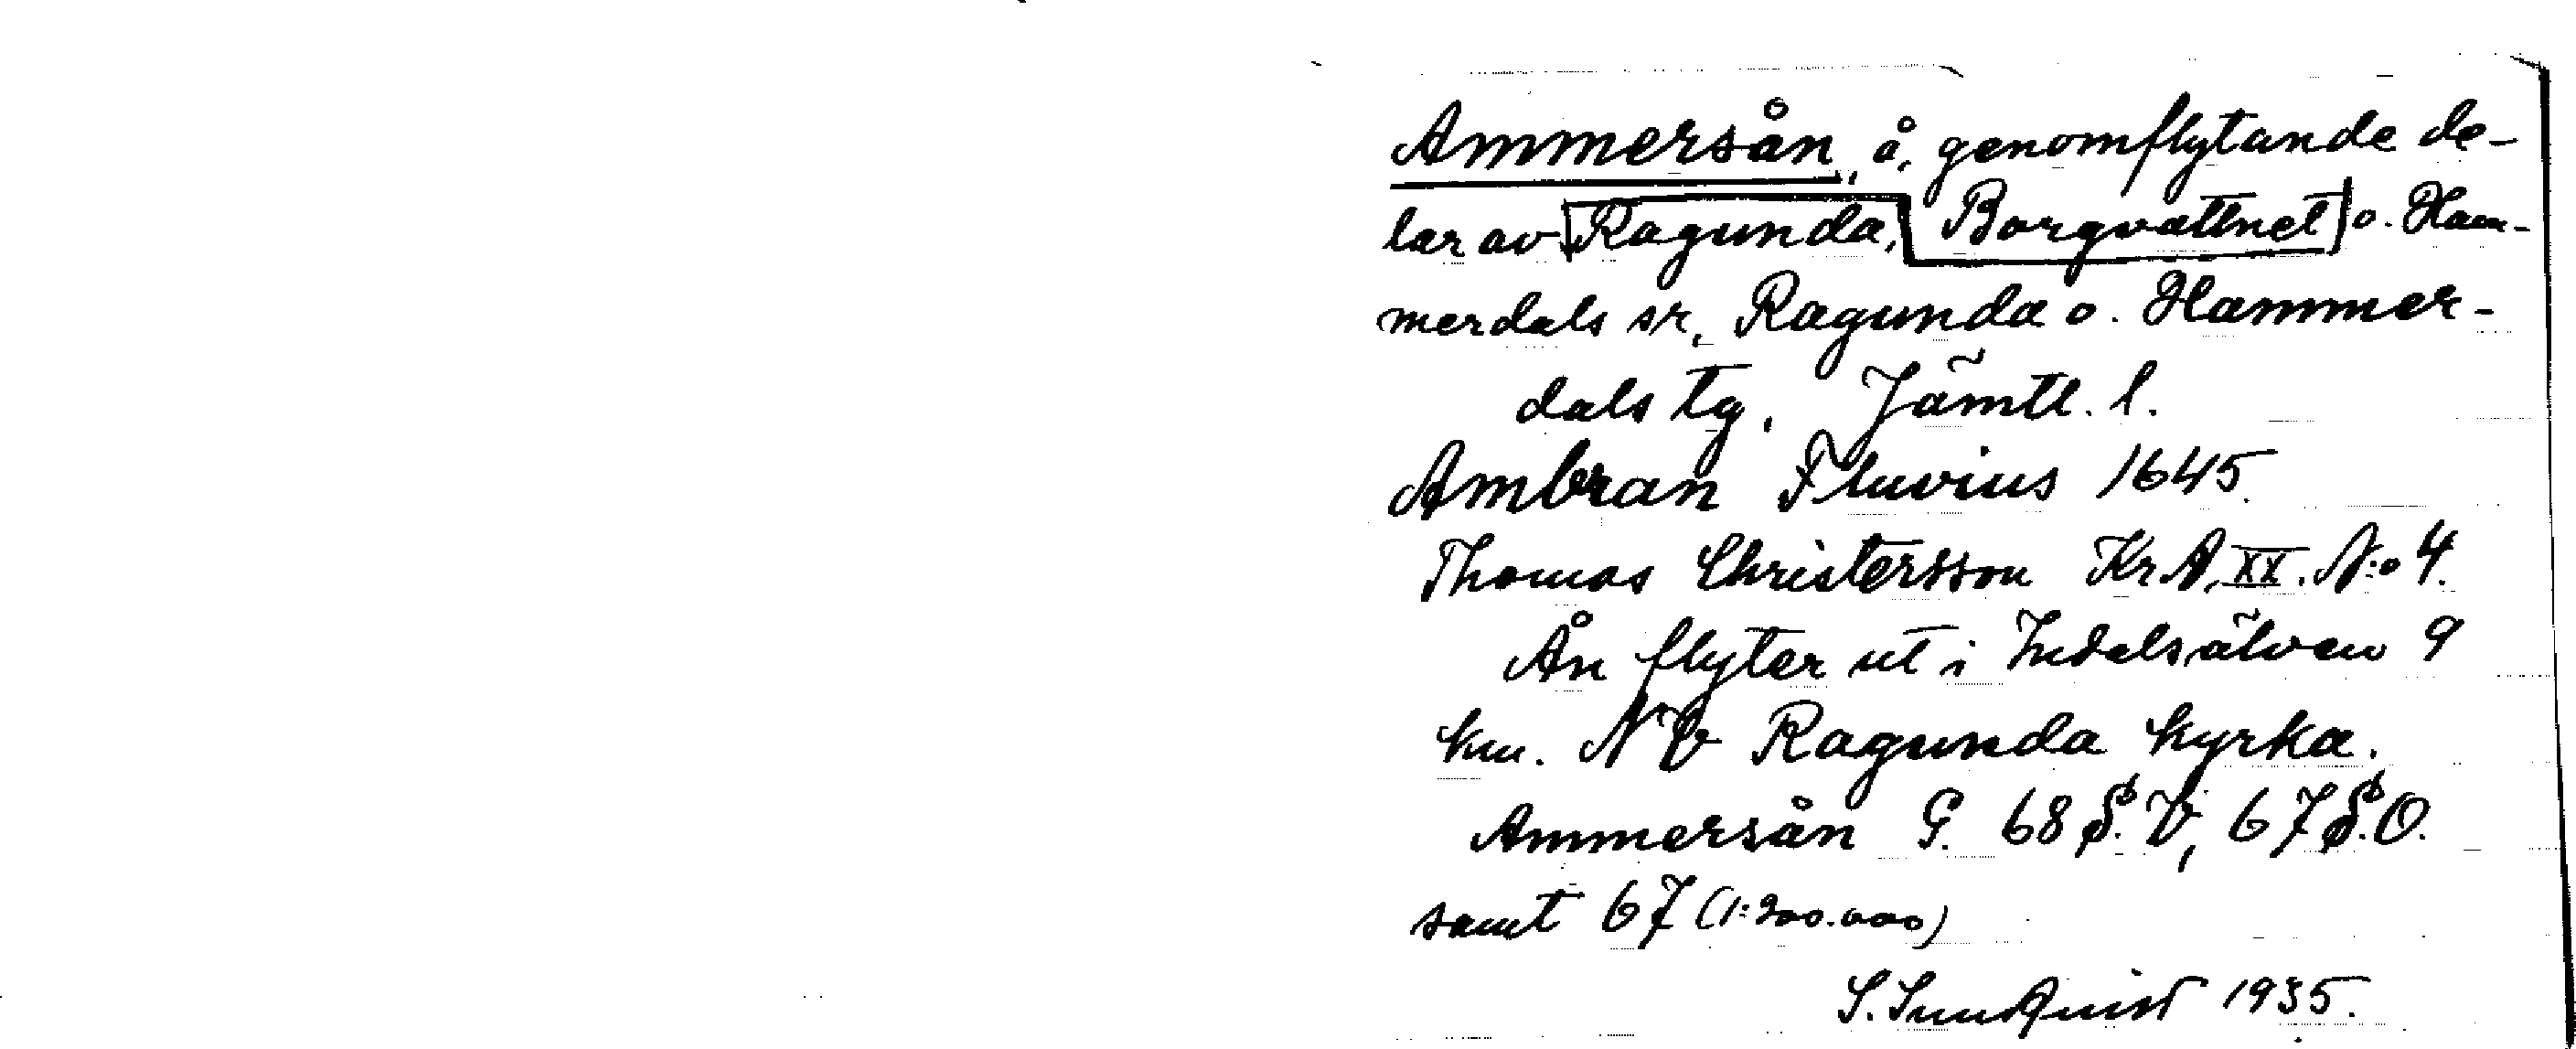 Ammersån, å, genomflytande de-
lar av Ragunda, Borgvattnet o. Ham-
merdals sr, Ragunda o. Hammer-
dals tg, Jämtl. l.
Ambran Fluvius 1645.
Thomas Christersson Kr. A. XX. N:o 4.
Ån flyter ut i Indalsälven 9
km. NV Ragunda kyrka.
Ammersån G. 68 S. V, 67 S. O.
samt 67 (1:200.000)
S. Sundquist 1935.